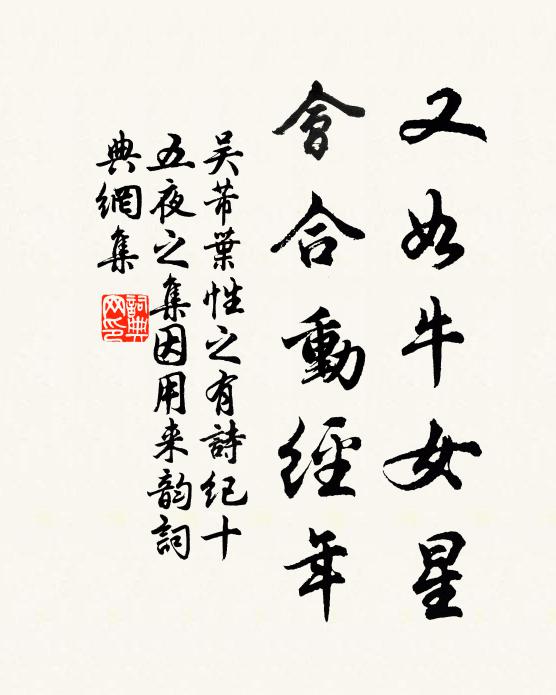 又如牛女星
會合動經年
吴芾葉性之有詩紀十
五夜之集因用来韵詞
典網集
詞典网印